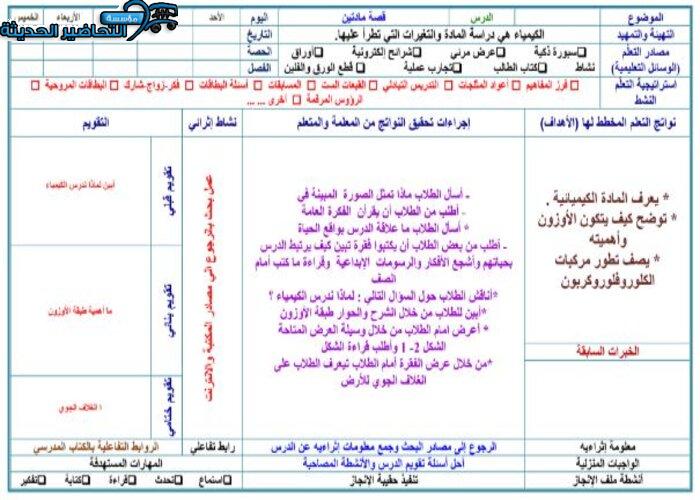 مؤسسة
التحاضير الحديثة
الموضوع
الدرس
قصة مادتين
اليوم
الأحد
الأربعاء
الخميس
التهيئة والتمهيد
الكيمياء هي دراسة المادة والتغيرات التي تطرأ عليها.
التاريخ
مصادر التعلم
سبورة ذكية
عرض مرئي
شرائح إلكترونية
أوراق
الحصة
(الوسائل التعليمية)
نشاط
كتاب الطالب
تجارب عملية
قطع الورق والفلين
الفصل
استراتيجية التعلم
فرز المفاهيم
أعواد المثلجات
التدريس التبادلي
القبعات الست
المسابقات
أسئلة البطاقات
فكر-زواج-شارك
البطاقات المروحية
النشط
الرؤوس المرقمة
أخرى ... ...
نواتج التعلم المخطط لها (الأهداف)
إجراءات تحقيق النواتج من المعلمة والمتعلم
نشاط إثرائي
التقويم
* يعرف المادة الكيميائية .
* توضح كيف يتكون الأوزون
وأهميته
* يصف تطور مركبات
الكلوروفلوروكربون
الخبرات السابقة
- أسأل الطلاب ماذا تمثل الصورة المبينة في
- أطلب من الطلاب أن يقرأن الفكرة العامة
* أسأل الطلاب ما علاقة الدرس بواقع الحياة
- أطلب من بعض الطلاب أن يكتبوا فقرة تبين كيف يرتبط الدرس
بحياتهم وأشجع الأفكار والرسومات الإبداعية وقراءة ما كتب أمام
الصف
*أناقش الطلاب حول السؤال التالي : لماذا ندرس الكيمياء ؟
*أبين للطلاب من خلال الشرح والحوار طبقة الأوزون
* أعرض امام الطلاب من خلال وسيلة العرض المتاحة
الشكل 2- 1 وأطلب قراءة الشكل
*من خلال عرض الفقرة أمام الطلاب تيعرف الطلاب على
الغلاف الجوي للأرض
عمل بحث بالرجوع الي مصادر المكتبة والانترنت
تقويم قبلي
أبين لماذا ندرس الكيمياء
تقويم بنائي
ما أهمية طبقة الأوزون
تقويم ختامي
الغلاف الجوي
معلومة إثراءيه
الرجوع إلى مصادر البحث وجمع معلومات إثراءيه عن الدرس
رابط تفاعلي
الروابط التفاعلية بالكتاب المدرسي
الواجبات المنزلية
أحل أسئلة تقويم الدرس والأنشطة المصاحبة
المهارات المستهدفة
أنشطة ملف الإنجاز
تنفيذ حقيبة الإنجاز
استماع
تحدث
قراءة
كتابة
تفكير